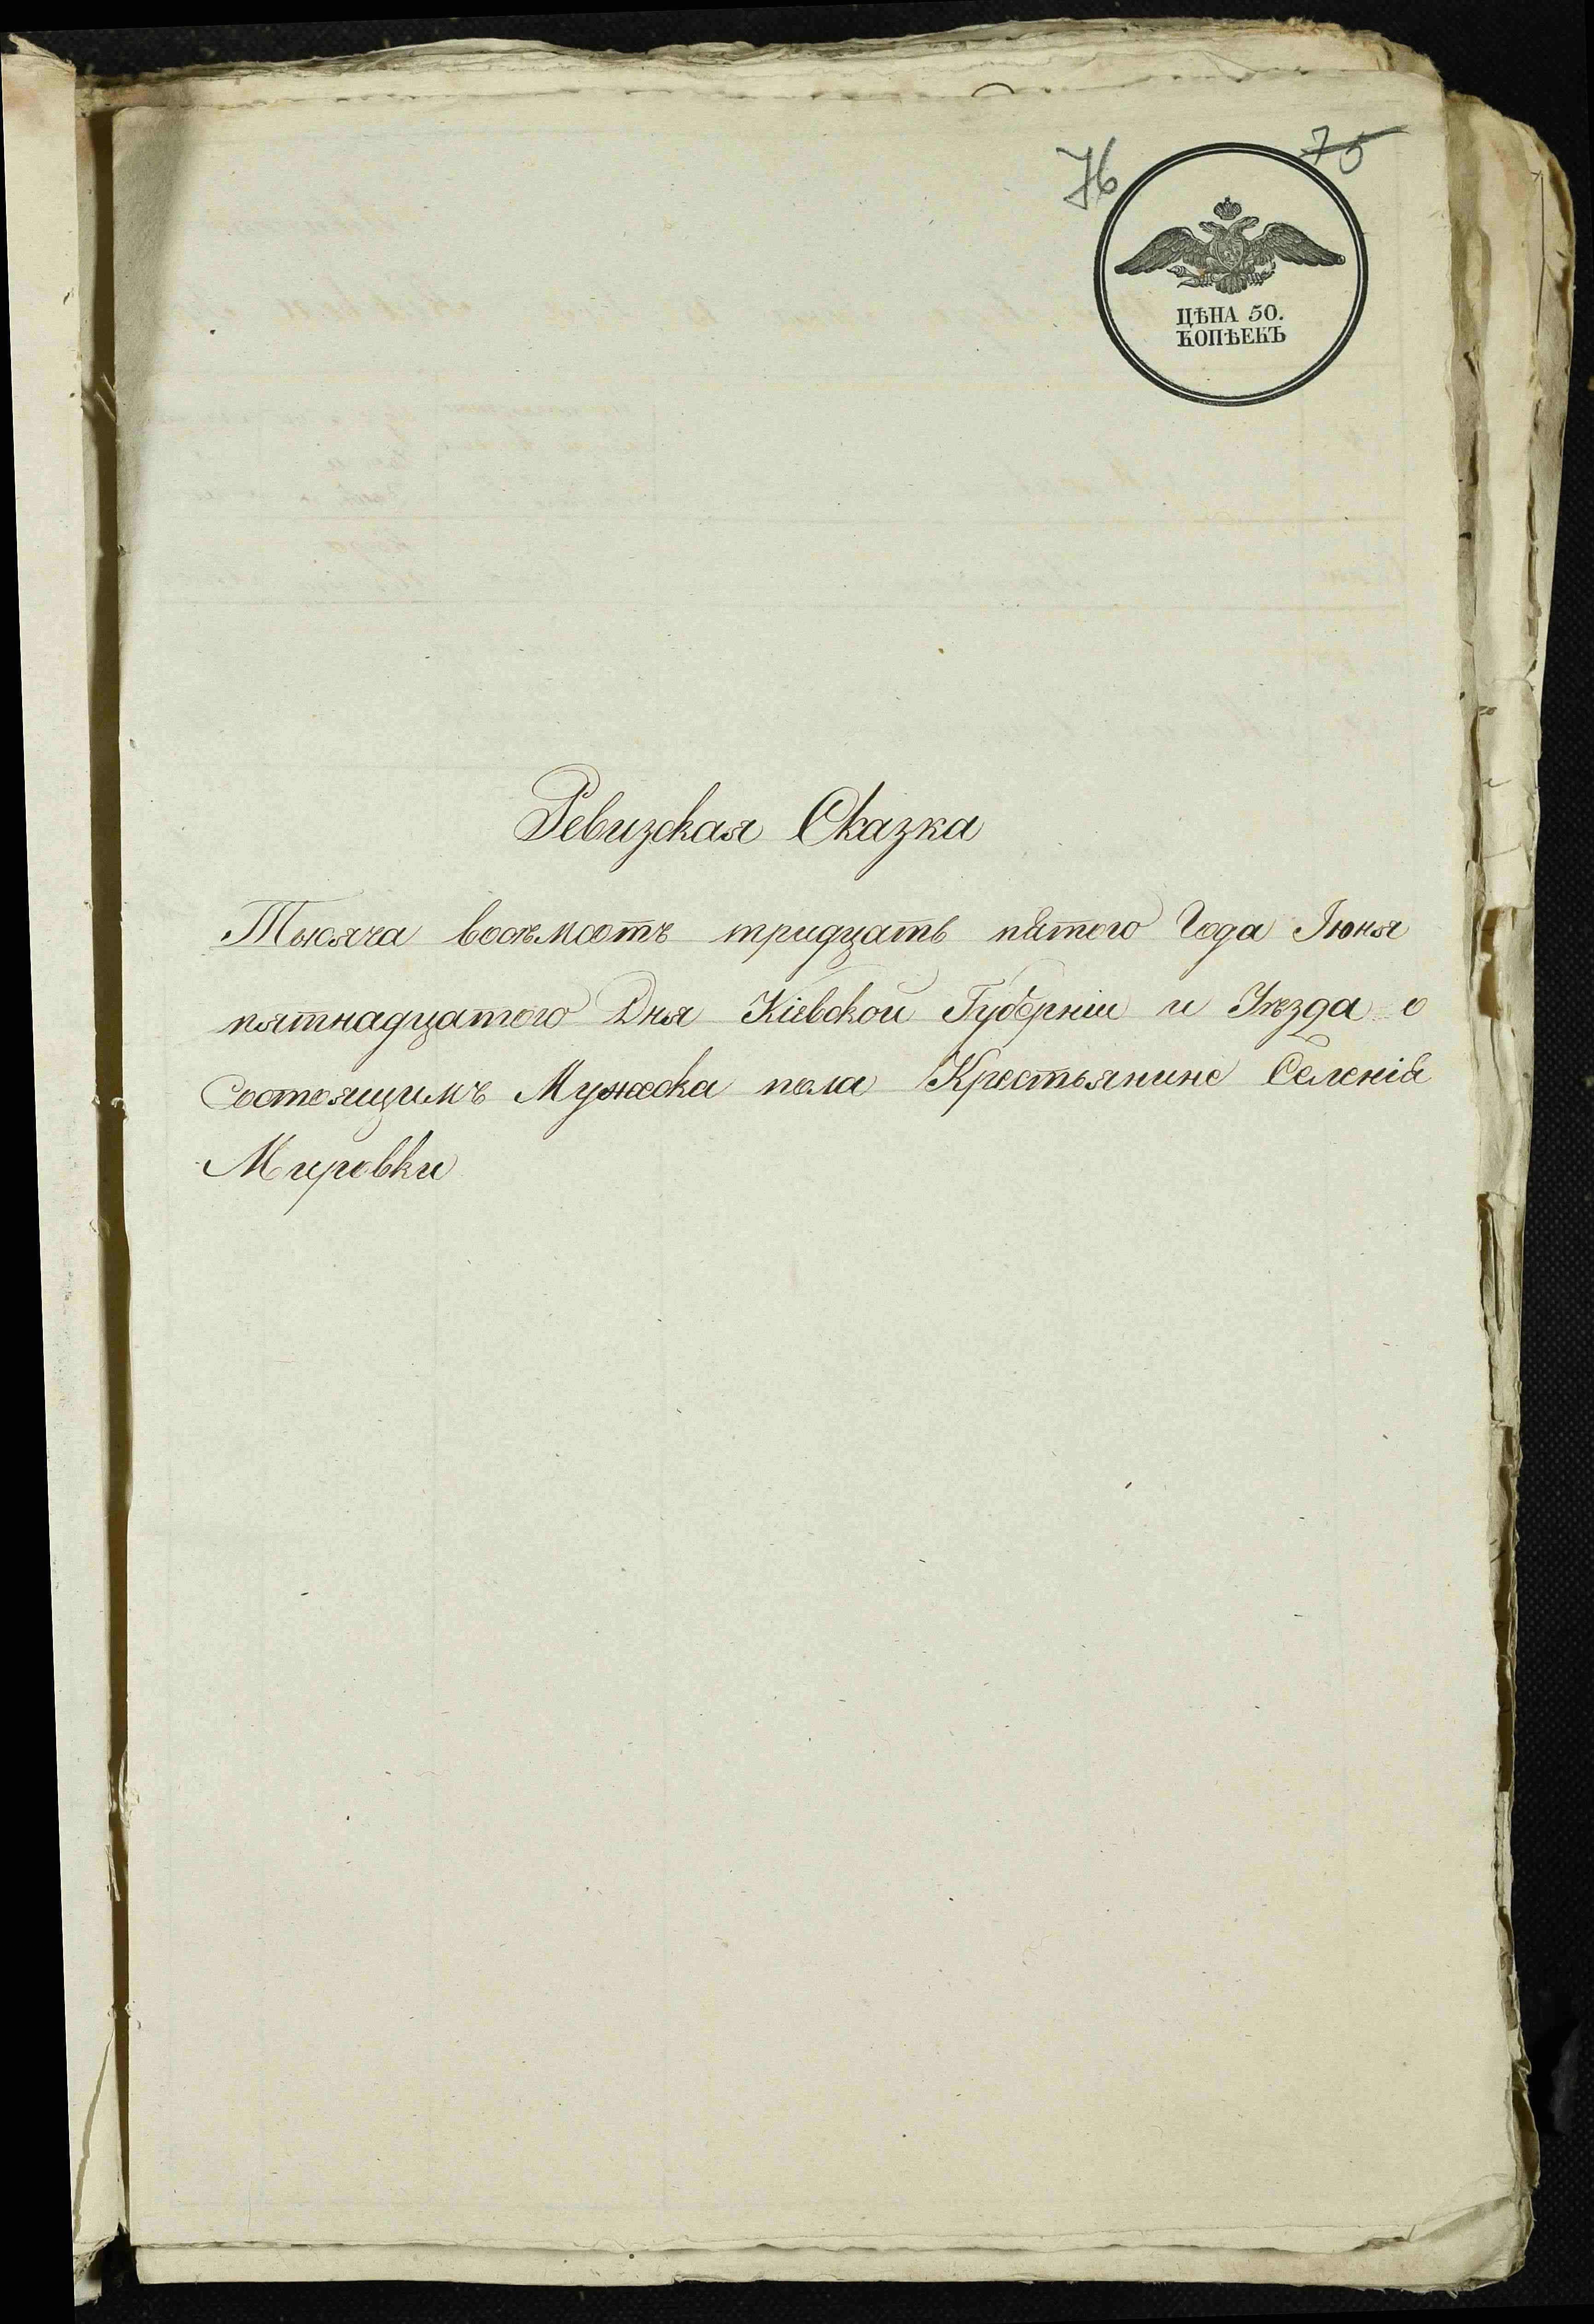 76 75
ЦѢНА 50.
КОПѢЕКЪ
Ревизская Сказка
Тысяча восѣмсотъ тридцать пятого Года Іюня
пятнадцатого Дня Кіевской Губерніи и Уѣзда о
состоящимъ Мужеска пола Крестьянине Селенія
Мировки